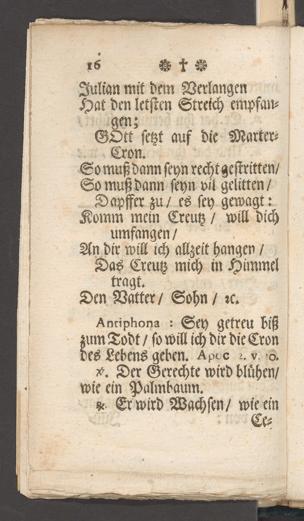 16 ❁ † ❁
Julian mit dem Verlangen
Hat den letsten Streich empfan-
gen;
GOtt setzt auf die Marter-
Cron.
So muß dann seyn recht gestritten/
So muß dann seyn vil gelitten/
Dapffer zu/ es sey gewagt:
Komm mein Creutz/ will dich
umfangen/
An dir will ich allzeit hangen/
Das Creutz mich in Himmel
tragt.
Den Vatter/ Sohn/ ꝛc.
Antiphona : Sey getreu biß
zum Todt/ so will ich dir die Cron
des Lebens geben. Apoc 2. v. 10.
℣. Der Gerechte wird blühen/
wie ein Palmbaum.
℟. Er wird Wachsen/ wie ein
Ce-